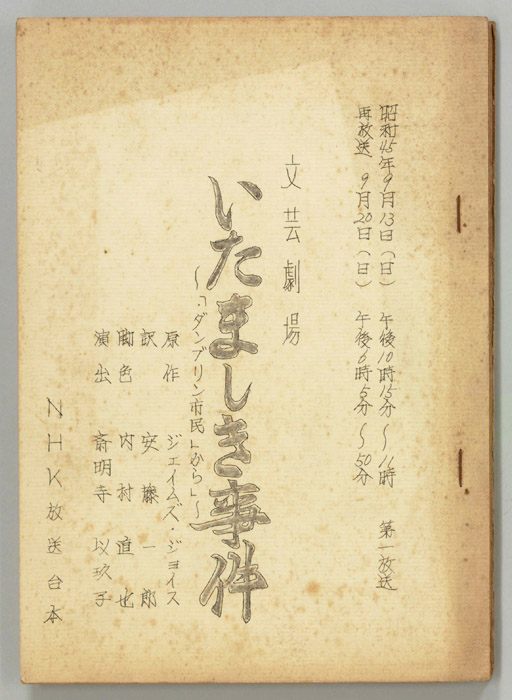 昭和45年9月13日（日） 午後10時15分〜11時 第一放送
再放送 9月20日（日） 午後6時5分〜50分
文芸劇場
いたましき事件
〜「ダンブリン市民」から」〜
原作 ジェイムズ・ジョイス
訳 安藤一郎
脚色 内村直也
演出 斎明寺以玖子
NHK放送台本